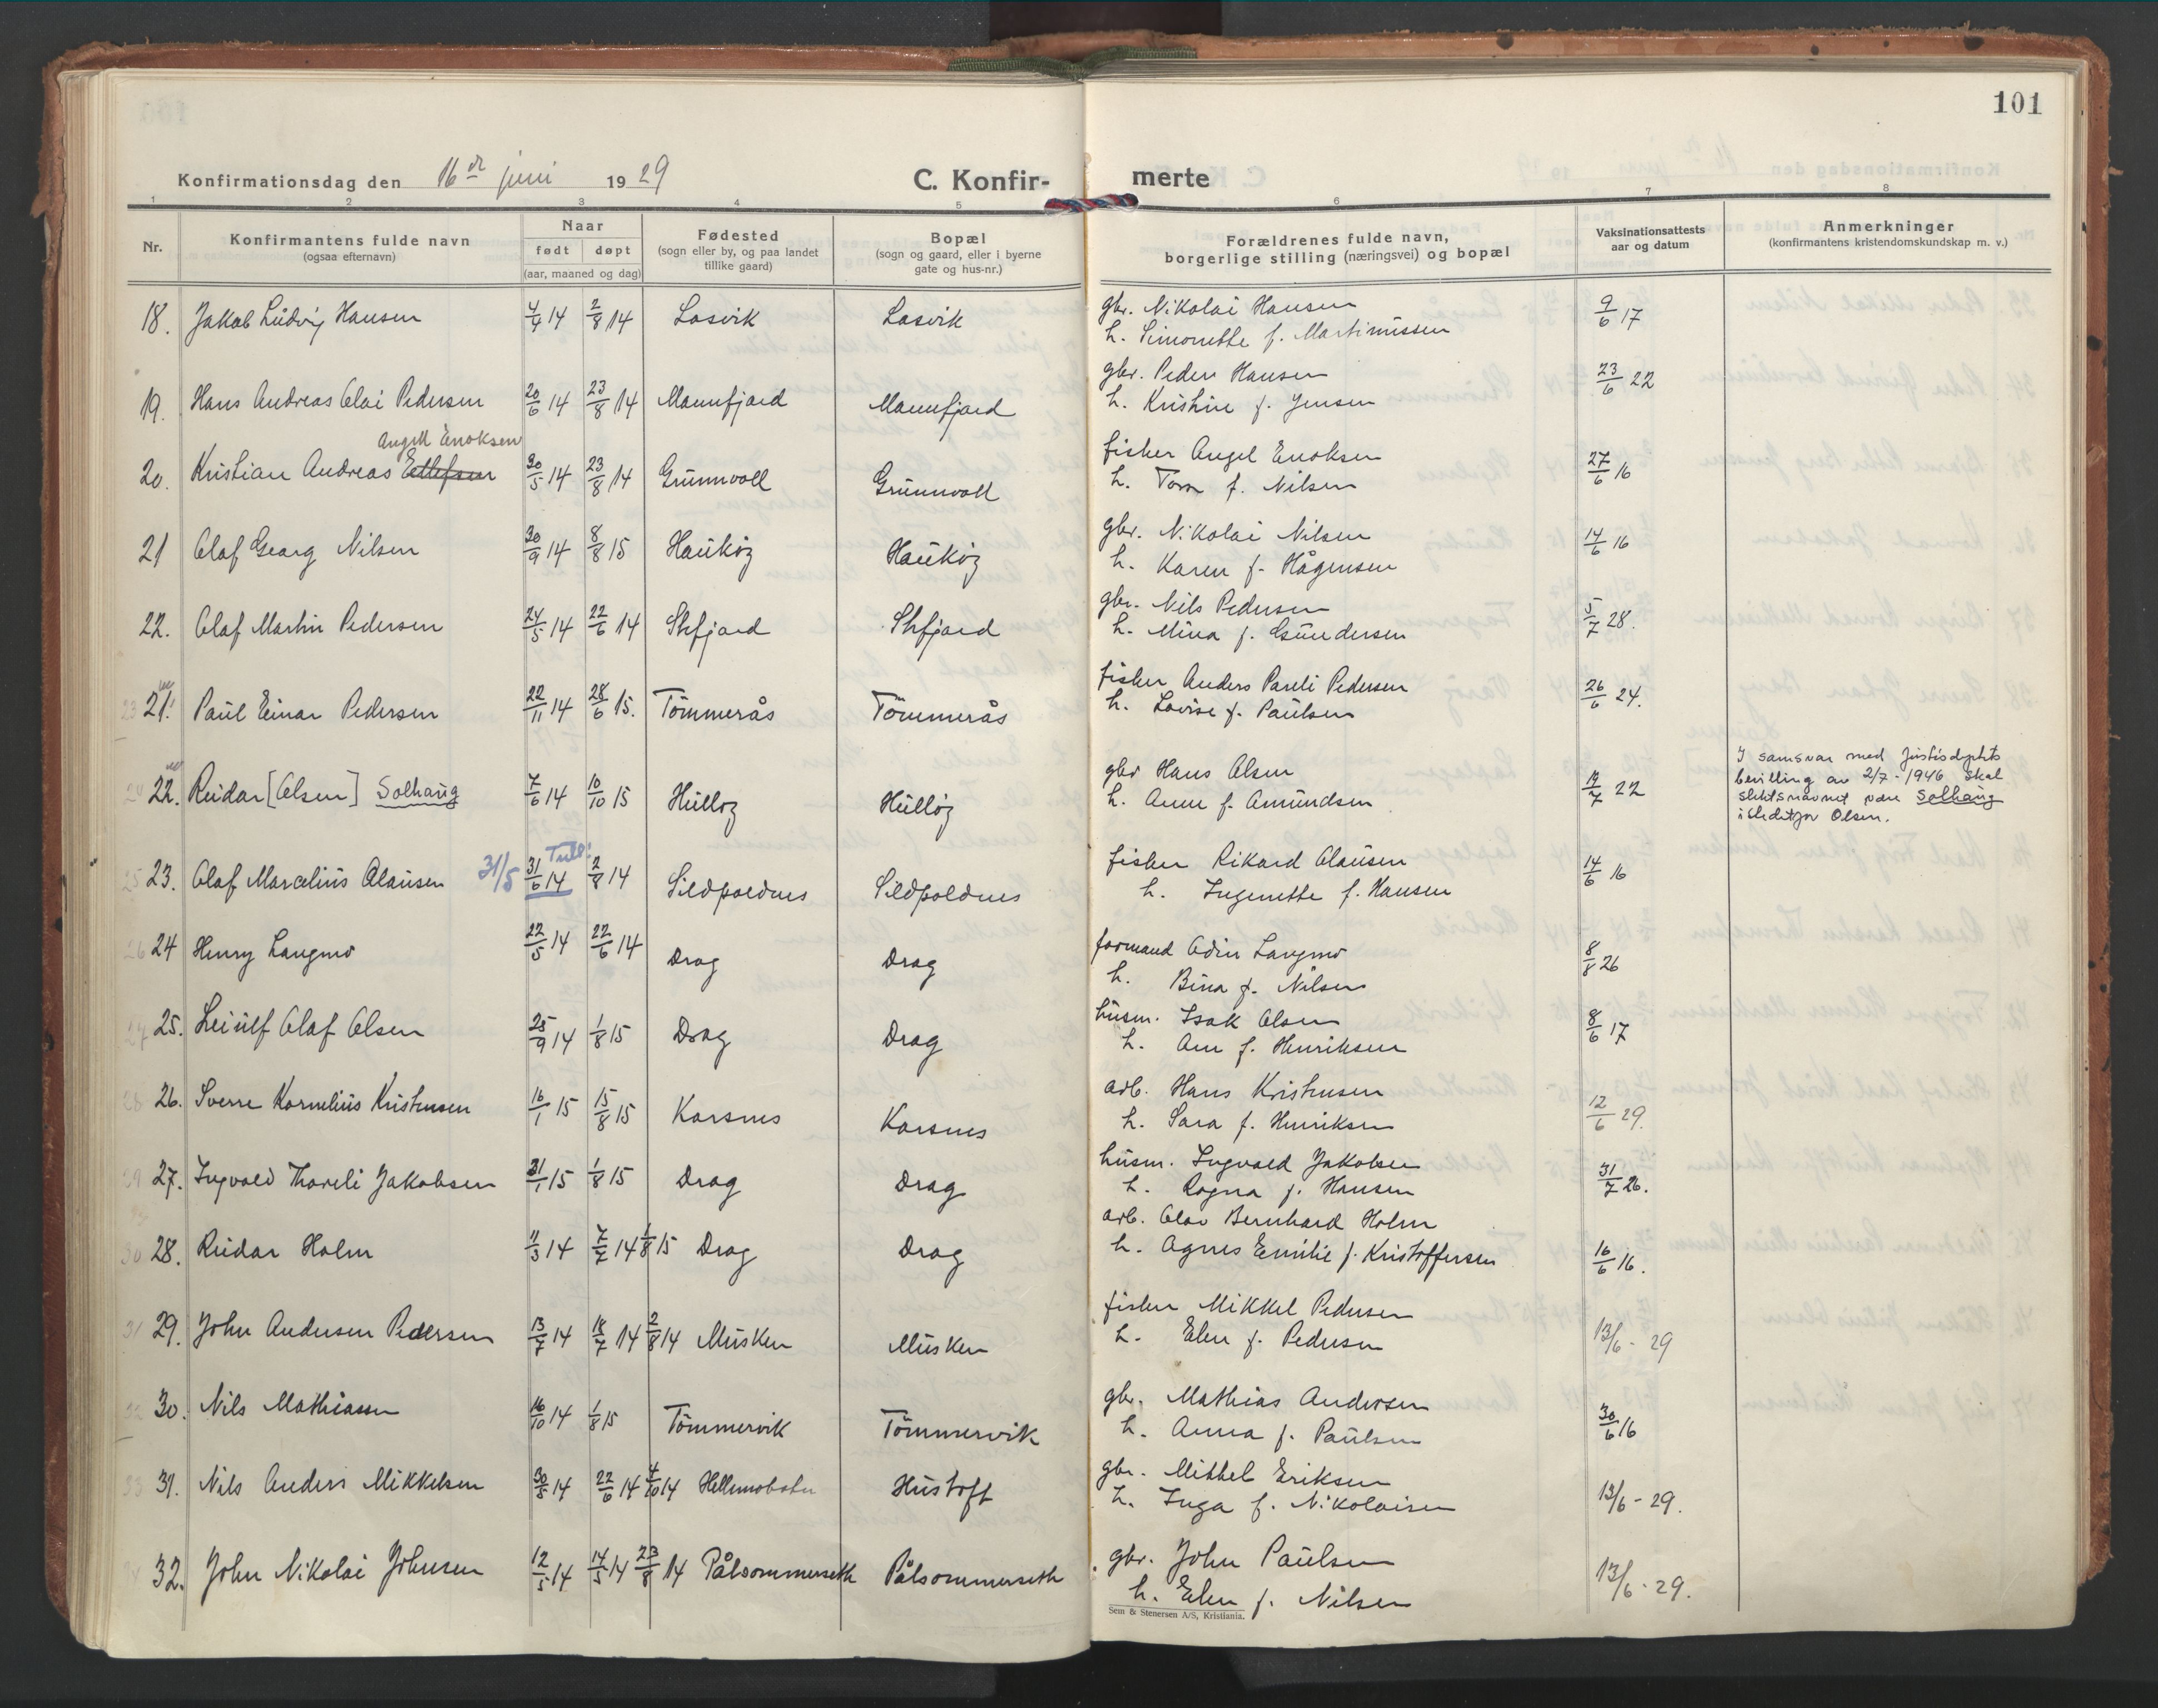 101
Konfirmationsdag den 16de juni 1929
C. Konfir-merte
1 2 3 4 5 6 7 8
Nr.
Konfirmantens fulde navn
(ogsaa efternavn)
Naar
født døpt
(aar, maaned og dag)
Fødested
(sogn eller by, og paa landet
tillike gaard)
Bopæl
(sogn og gaard, eller i byerne
gate og hus-nr.)
Forældrenes fulde navn,
borgerlige stilling (næringsvei) og bopæl
Vaksinationsattests
aar og datum
Anmerkninger
(konfirmantens kristendomskundskap m. v.)
18. Jakob Ludvig Hansen 4/4 14 2/8 14 Losvik Losvik gbr. Nikolai Hansen 9/6 17
h. Simonette f. Martinussen
19. Hans Andreas Olai Pedersen 20/6 14 23/8 14 Mannfjord Mannfjord gbr. Peder Hansen 23/6 22
h. Kristine f. Jensen
Angell Enoksen
20. Kristian Andreas Ellefsen 30/5 14 23/8 14 Grunnvoll Grunnvoll fisker Angel Enoksen 27/6 16
h. Tora f. Nilsen
21 Olaf Georg Nilsen 30/9 14 8/8 15 Haukøy Haukøy gbr. Nikolai Nilsen 14/6 16
h. Karen f. Hågensen
22. Olaf Martin Pedersen 24/5 14 22/6 14 Stefjord Stefjord gbr. Nils Pedersen 5/7 28.
h. Mina f. Gundersen
23 21. Paul Einar Pedersen 22/11 14 28/6 15. Tömmerås Tömmerås fisker Anders Pareli Pedersen 26/6 24.
h. Lovise f. Paulsen
24 22. Reidar [Olsen] Solhaug 7/6 14 10/10 15 Hulløy Hulløy gbr Hans Olsen 22
h. Anne f. Amundsen
I samsvar med Justisdeptets
bevilling av 2/7-1946 skal
slektsnavnet være Solhaug
istedetfor Olsen.
25 23. Olaf Marcelius Olausen 31/5 31/6 14 2/8 14 Sildpoldnes Sildpoldnes fisker Rikard Olausen 14/6 16
h. Ingenette f. Hansen
26 24 Henry Langmo 22/5 14 22/6 14 Drag Drag formand Odin Langmo 8/8 26
h. Bina f. Nilsen
27 25. Leiulf Olaf Olsen 25/9 14 1/8 15 Drag Drag husm. Isak Olsen 8/6 17
h. Ane f. Henriksen
28 26. Sverre Kornelius Kristensen 16/1 15 15/8 15 Korsnes Korsnes arb. Hans Kristensen 12/6 29.
h. Sara f. Henriksen
29 27. Ingvald Thoreli Jakobsen 31/1 15 1/8 15 Drag Drag husm. Ingvald Jakobsen 31/7 26.
h. Ragna f. Hansen
30 28. Reidar Holm 11/3 14 7/7 14 1/8 15 Drag Drag arb. Olav Bernhard Holm 16/6 16.
h. Agnes Emilie f. Kristoffersen
31 29. John Andersen Pedersen 13/7 14 18/7 14 2/8 14 Musken Musken fisker Mikkel Pedersen 13/6 - 29
h. Elen f. Pedersen
32 30. Nils Mathiassen 16/10 14 1/8 15 Tömmervik Tömmervik gbr. Mathias Andersen 30/6 16
h. Anna f. Paulsen
33 31. Nils Anders Mikkelsen 30/5 14 22/6 14 4/10 14 Hellmobotn Hustoft gbr. Mikkel Eriksen 13/6 - 29.
h. Inga f. Nikolaisen
32. John Nikolai Johnsen 12/5 14 14/5 14 23/8 14 Pålsommerseth Pålsommerseth gbr. John Paulsen 13/6 - 29.
h. Elen f. Nilsen
Sem & Stenersen A/S, Kristiania.